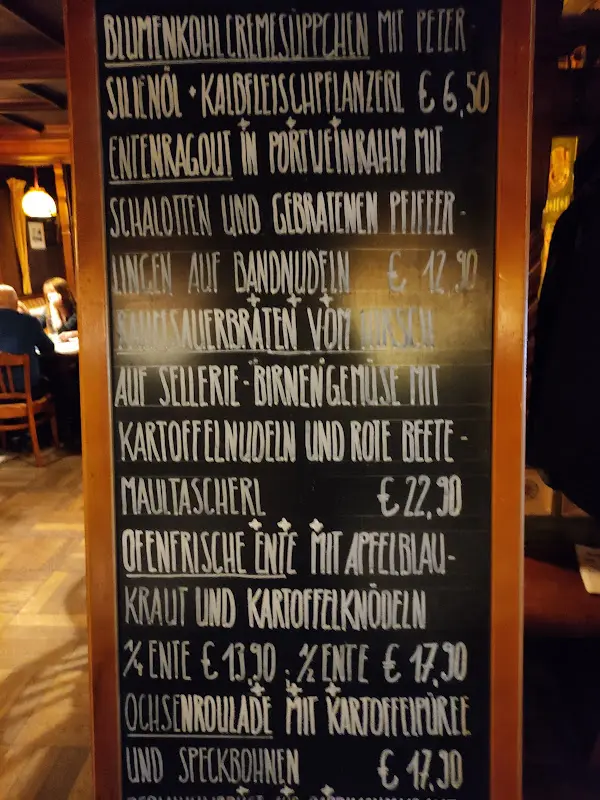 BLUMENKOHLCREMESÜPPCHEN MIT PETER-
SILIENÖL + KALBFLEISCHPFLANZERL € 6,50
ENTENRAGOUT IN PORTWEINRAHM MIT
SCHALOTTEN UND GEBRATENEN PFIFFER-
LINGEN AUF BANDNUDELN € 12,90
RAHMSAUERBRATEN VOM HIRSCH
AUF SELLERIE-BIRNENGEMÜSE MIT
KARTOFFELNUDELN UND ROTE BEETE-
MAULTASCHERL € 22,90
OFENFRISCHE ENTE MIT APFELBLAU-
KRAUT UND KARTOFFELKNÖDELN
1/4 ENTE € 13,90 . 1/2 ENTE € 17,90
OCHSENROULADE MIT KARTOFFELPÜREE
UND SPECKBOHNEN € 17,90